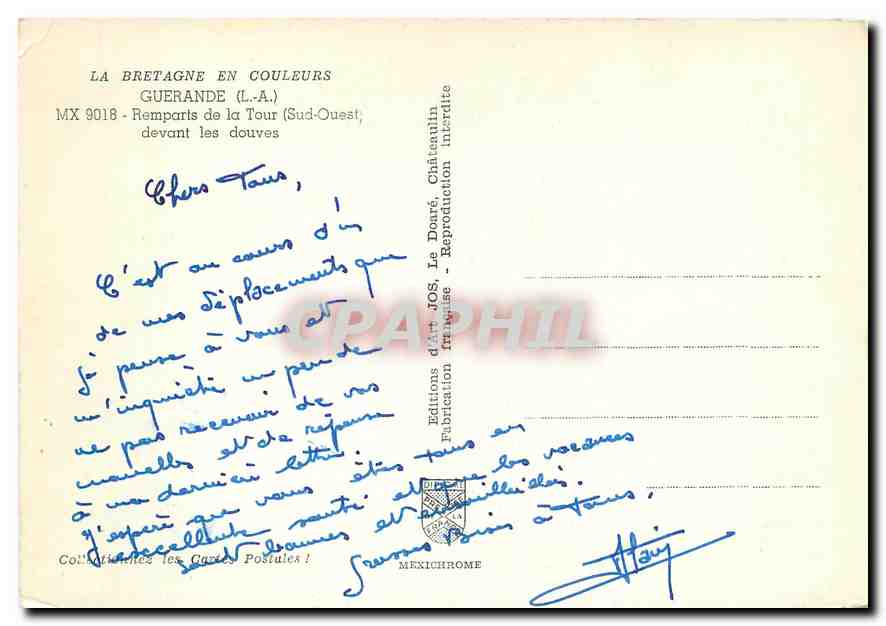 LA BRETAGNE EN COULEURS
GUERANDE (L.-A.)
MX 9018 - Remparts de la Tour (Sud-Ouest)
devant les douves
Chers Tous,
C'est au cours d'un
de mes déplacements que
je pense à vous et
m'inquiète un peu de
ne pas recevoir de vos
nouvelles et de réponse
à ma dernière lettre.
J'espère que vous êtes tous en
excellente santé et que les vacances
sont bonnes et ensoleillées.
Grosses Bises à Tous,
Alain
Editions d'Art JOS, Le Doaré, Châteaulin
Fabrication française - Reproduction interdite
CPAPHIL
Collectionnez les Cartes Postales !
MEXICHROME